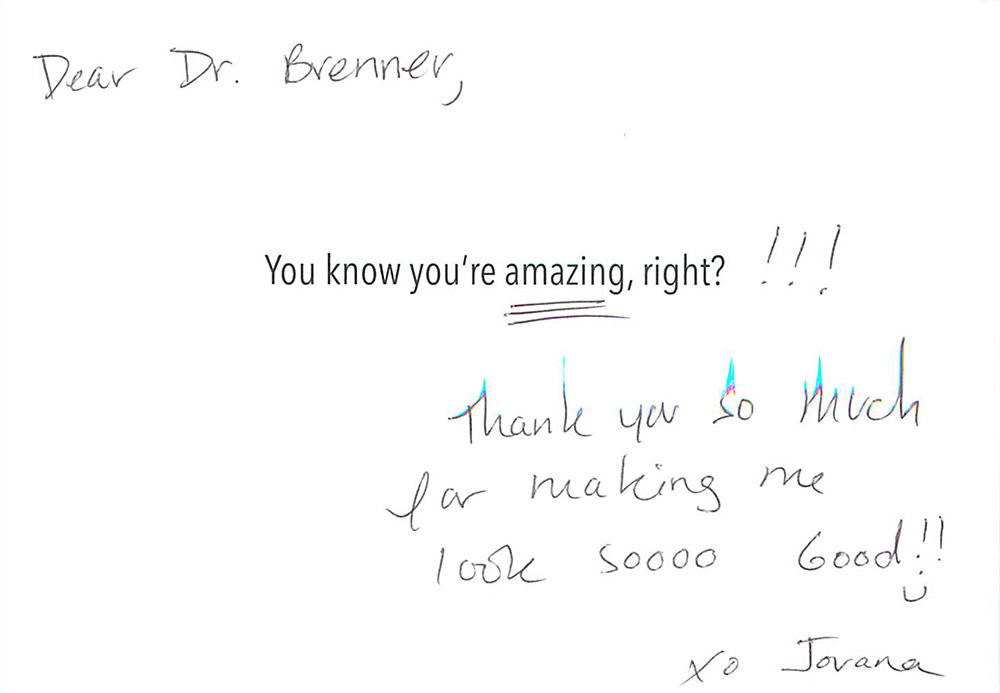 Dear Dr. Brenner,
You know you're amazing, right? !!!
Thank you so much
for making me
look soooo Good!!
xo Jovana